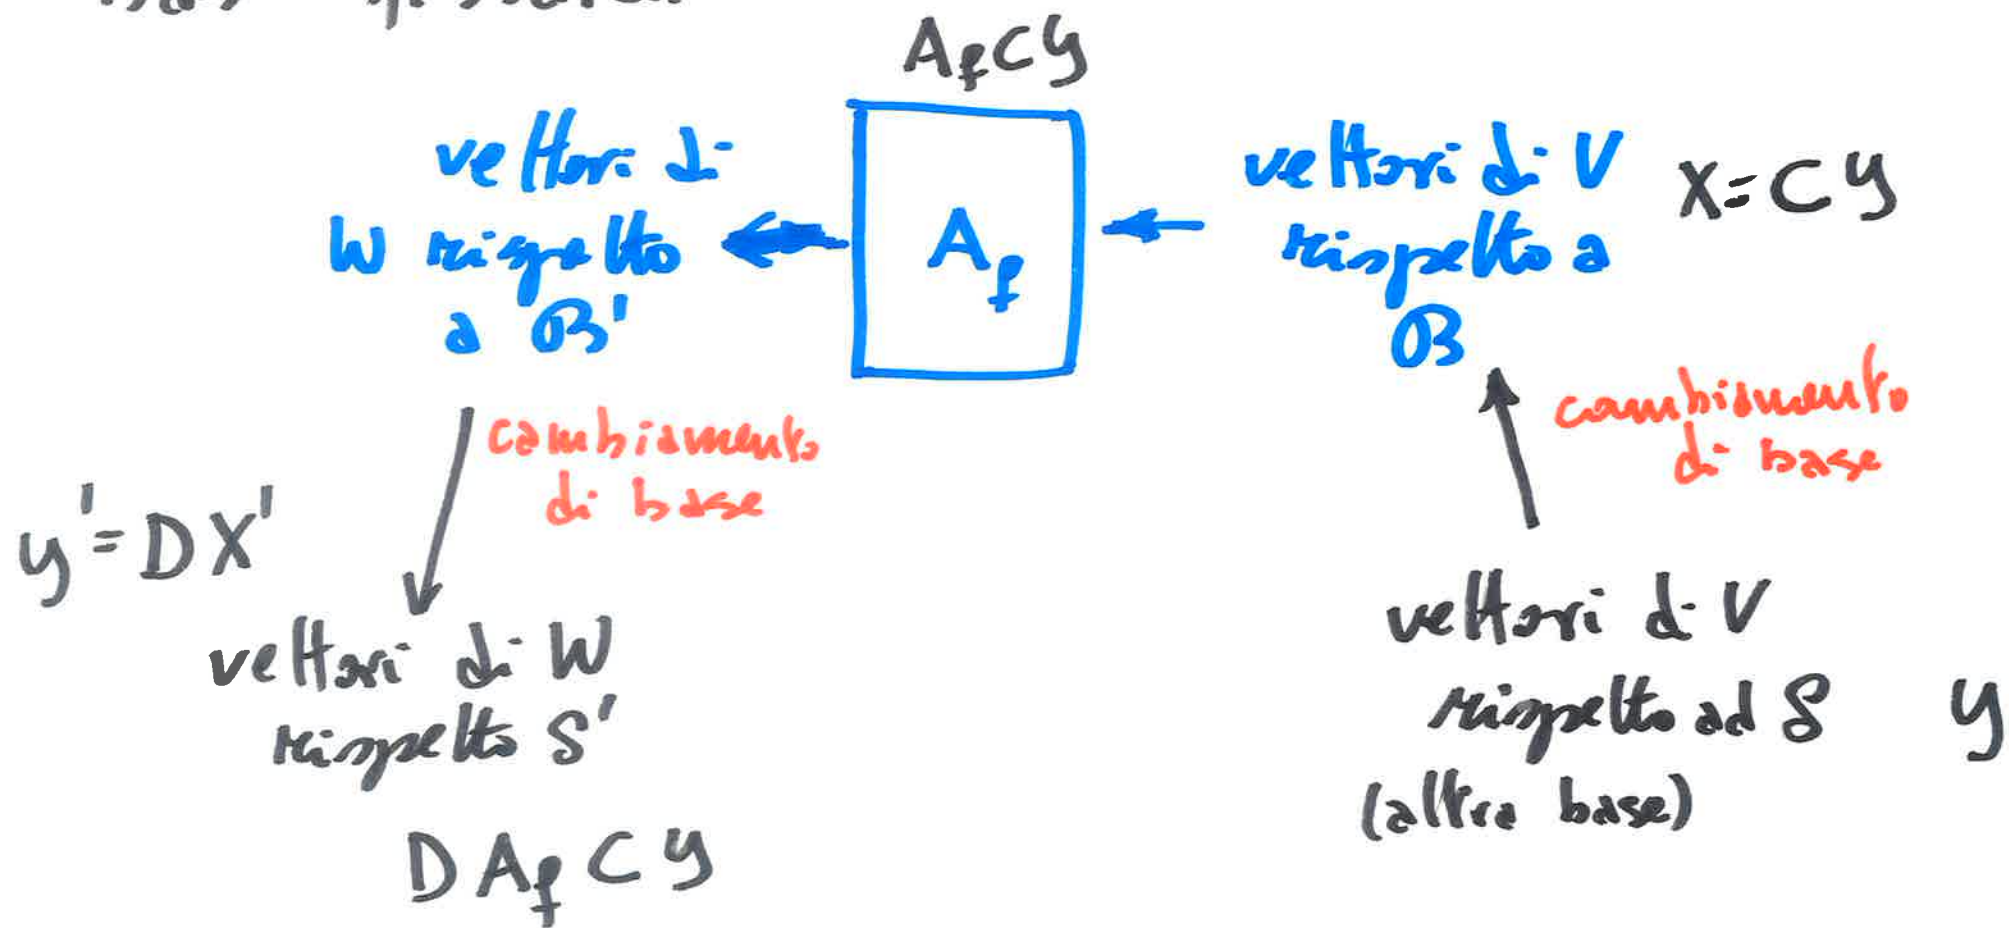 A_f C y
vettori di
W rispetto
a B'
A_f
vettori di V
rispetto a
B
X = C y
cambiamento
di base
cambiamento
di base
y' = D X'
vettori di W
rispetto S'
D A_f C y
vettori di V
rispetto ad S
(altra base)
y